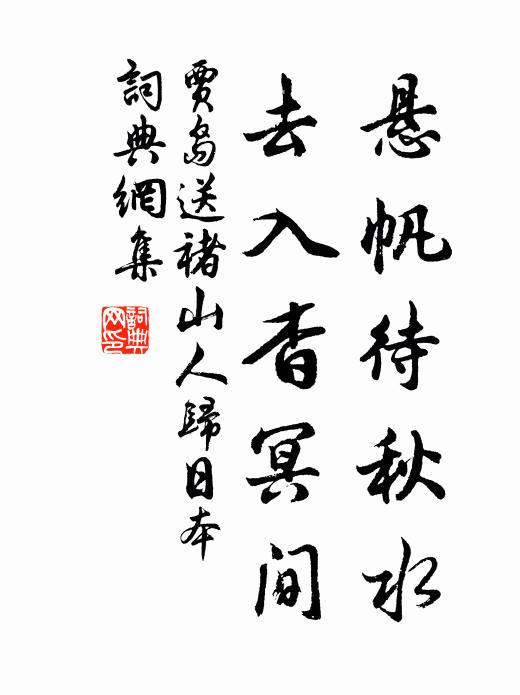 悬帆待秋水
去入杳冥间
贾岛送褚山人歸日本
詞典網集
詞典网印